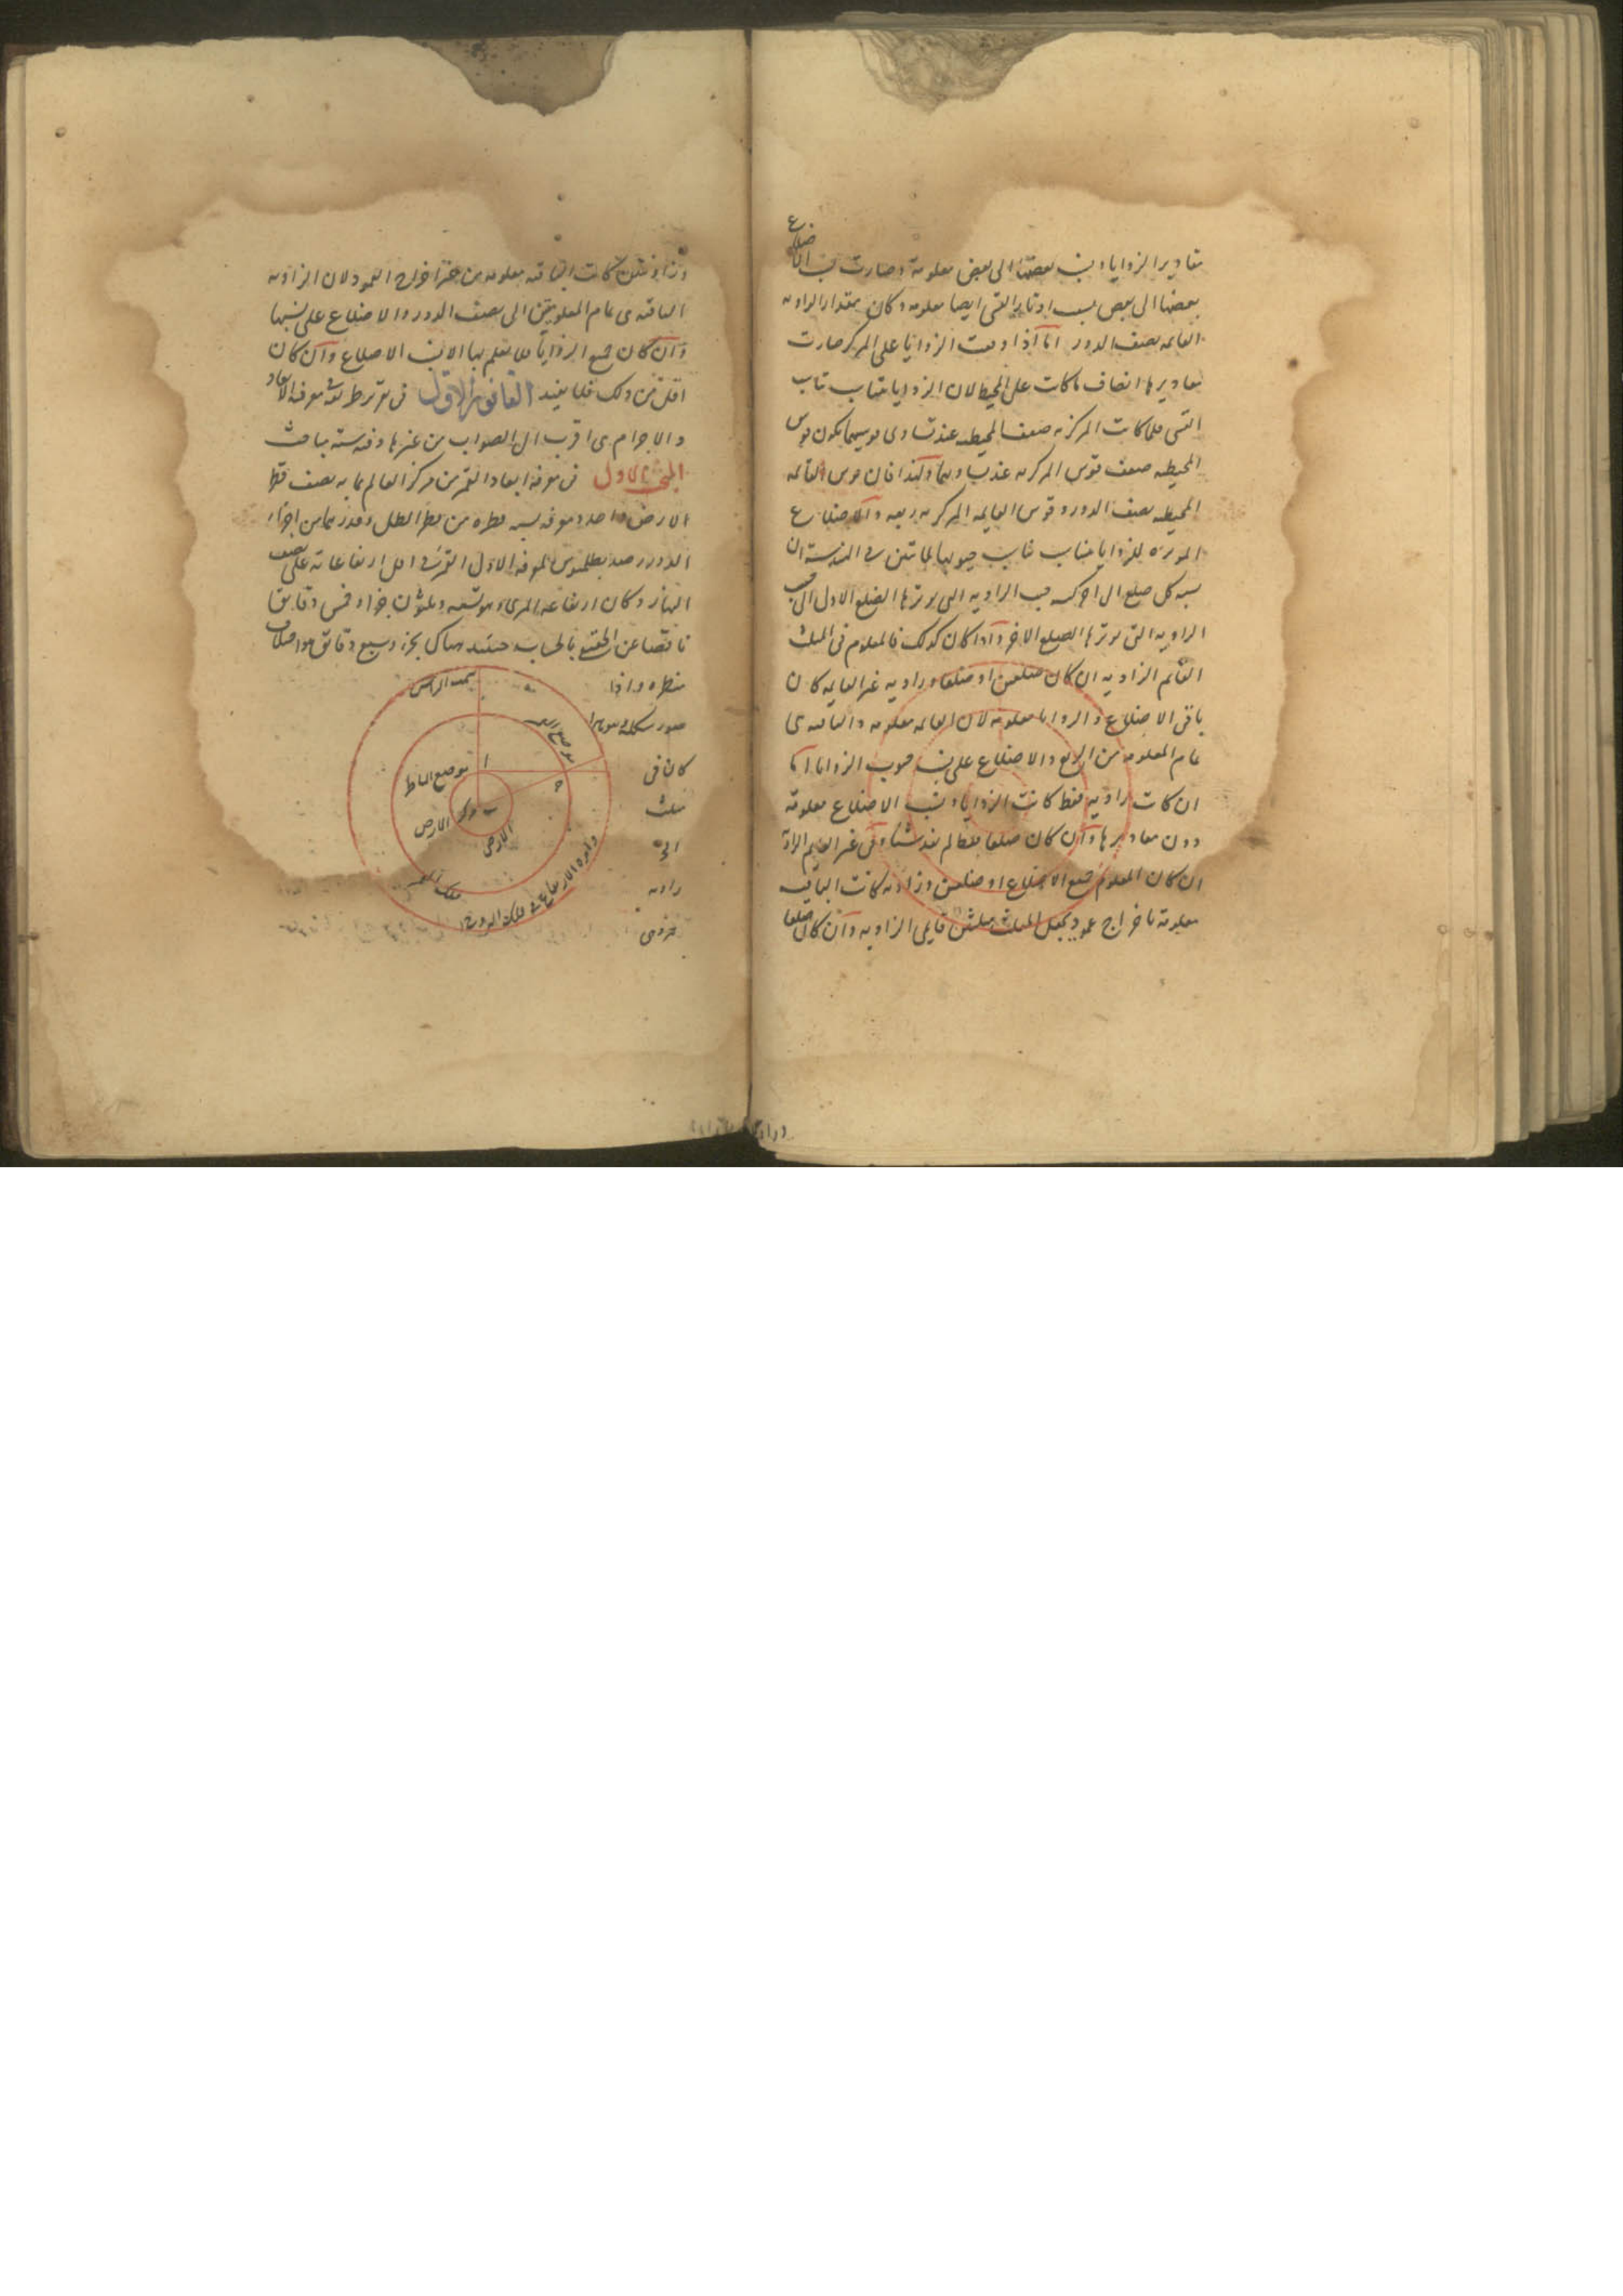 مقادير الزوايا ونسب بعضها الى بعض معلومة وصارت نسب الاضلاع
بعضها الى بعض نسب اوتار القسى ايضا معلومه وكان مقدار الزاويه
القائمه نصف الدور اما اذا وقعت الزوايا على المركز صارت
مقاديرها انصاف ما كانت على المحيط لان الزوايا تناسب
القسى فلما كانت المركزيه ضعف المحيطيه عند تساوى قوسيهما يكون قوس
المحيطيه ضعف قوس المركزيه عند تساويهما ولهذا فان قوس القائمه
المحيطيه نصف الدور وقوس القايمه المركزيه ربعه والاضلاع
الموتره للزوايا تناسب جيوبها لما تبين فى الهندسة ان
نسبه كل ضلع الى اخر كنسبه جيب الزاويه التى يوترها الضلع الاول الى جيب
الزاويه التى يوترها الضلع الاخر واذا كان كذلك فالمعلوم فى المثلث
القائم الزاويه ان كان ضلعين او ضلعا وزاويه غير القايمه كان
باقى الاضلاع والزوايا معلومه لان القائمه معلومه والباقيه هى
تمام المعلومه من الربع والاضلاع على نسب جيوب الزوايا اما
ان كانت زاويه فقط كانت الزوايا ونسب الاضلاع معلومة
دون مقاديرها وان كان ضلعا فقط لم يفد شيئا وفى غير القايم الزاويه
ان كان المعلوم جميع الاضلاع او ضلعين وزاويه كانت الباقيه
معلومة باخراج عمود يجعل المثلث مثلثين قايمى الزاويه وان كان ضلعا
وزاويتين كانت الباقيه معلومه من غير اخراج العمود لان الزاويه
الباقيه هى تمام المعلومتين الى نصف الدور والاضلاع على نسبها
وان كان جميع الزوايا فلا يعلم بها الا نسب الاضلاع وان كان
اقل من ذلك فلا يفيد القانون الاول فى تقرير طريقة معرفة الابعاد
والاجرام هى اقرب الى الصواب من غيرها وفيه ستة مباحث
المبحث الاول فى معرفة ابعاد القمر من مركز العالم بما به نصف قطر
الارض واحد ومعرفة نسبه قطره من قطر الظل وقدرهما من اجزاء
الدور رصد بطلميوس لمعرفة الاول القمر فى اقل ارتفاعاته على نصف
النهار وكان ارتفاعه المرئى تسعه وثلثون جزءا وخمس دقايق
ناقصا عن الحقيقى بالحساب حينئذ هناك بجزء وسبع دقائق هو اختلاف
منظره واذا
كان فى
مثلث
زاويه
سمت الراس
موضع القمر
ا موضع الناظر
ب مركز الارض
الارض
فلك القمر
دائرة الارتفاع فى فلك البروج